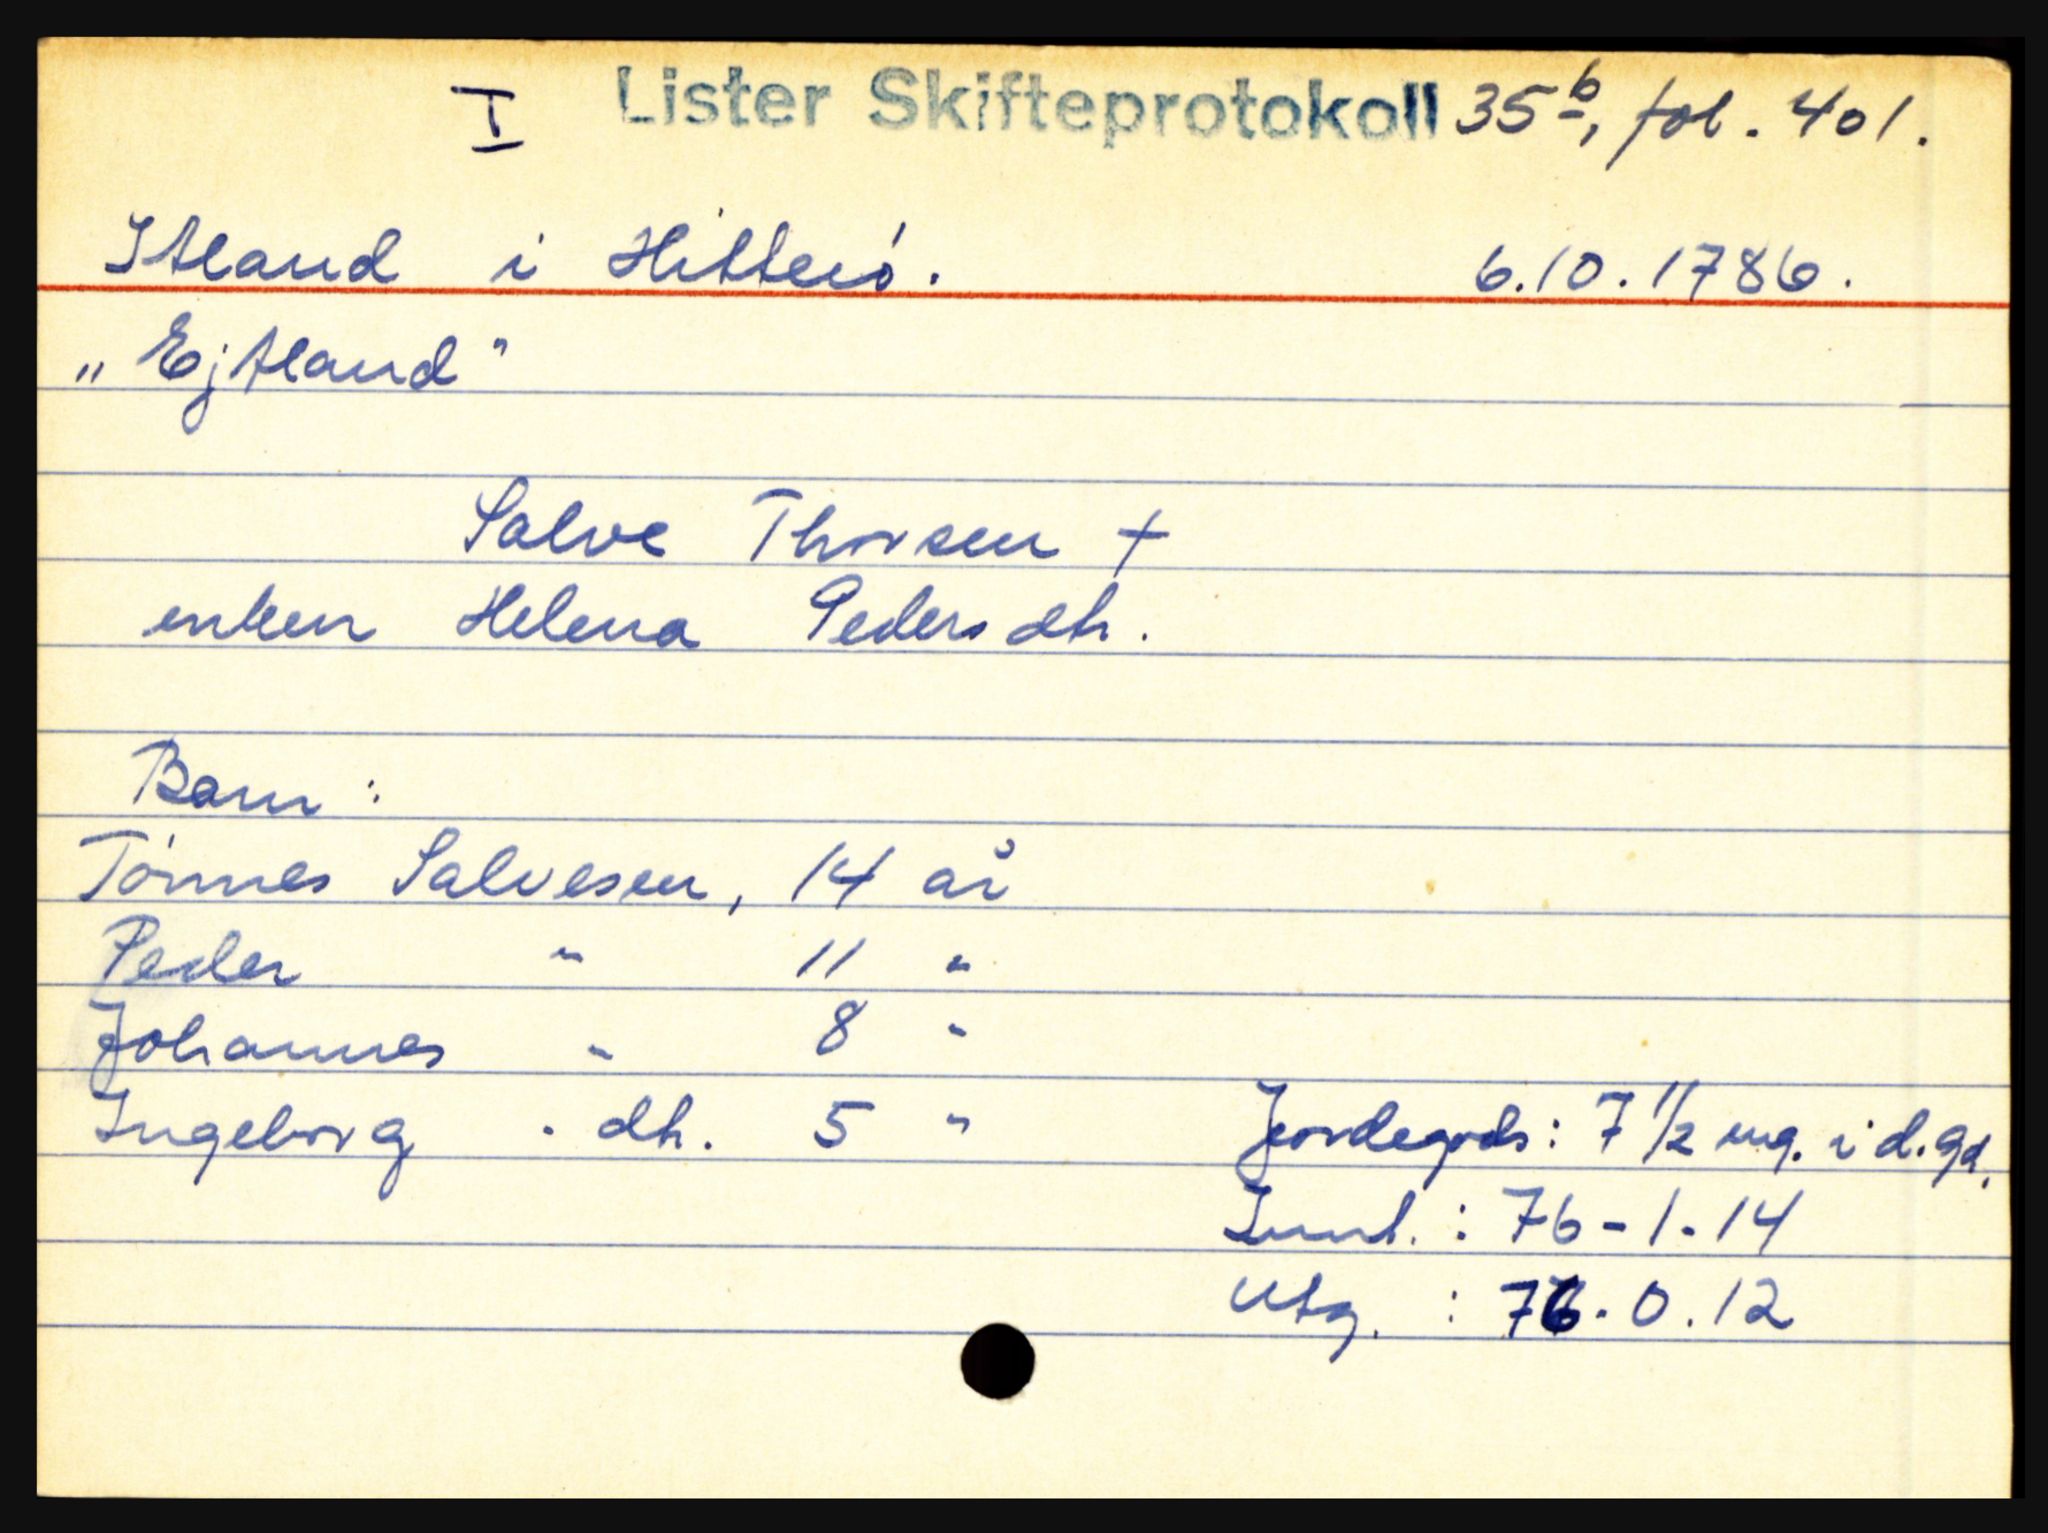 I Lister Skifteprotokoll 35b, fol. 401.
Itland i Hitterö. 6.10.1786.
„Ejtland"
Salve Thorsen †
enken Helena Pedersdtr.
Barn:
Tönnes Salvesen, 14 år
Peder " 11 "
Johannes " 8 "
Ingeborg " dtr. 5 "
Jordegods: 7 1/2 mg. i d.gd.
Innt.: 76-1-14
Utg.: 76.0.12